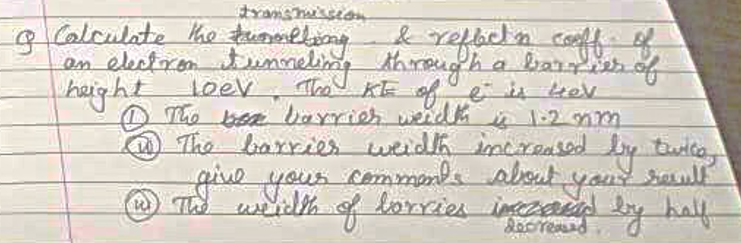 transmission
Q Calculate the tunnelling & reflectn coeff. of
an electron tunneling through a barrier of
height 10eV. The KE of e- is 4eV
(i) The barrier weidth is 1.2 nm
(ii) The barrier weidth increased by twice,
give your comments about your result
(iii) The weidth of barries decreased by half